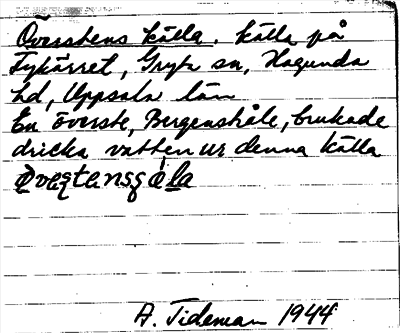 Överstens källa, källa på
Fykärret, Gryts sn, Hagunda
hd, Uppsala län
En överste, Bergenståle, brukade
dricka vatten ur denna källa
A. Tideman 1944